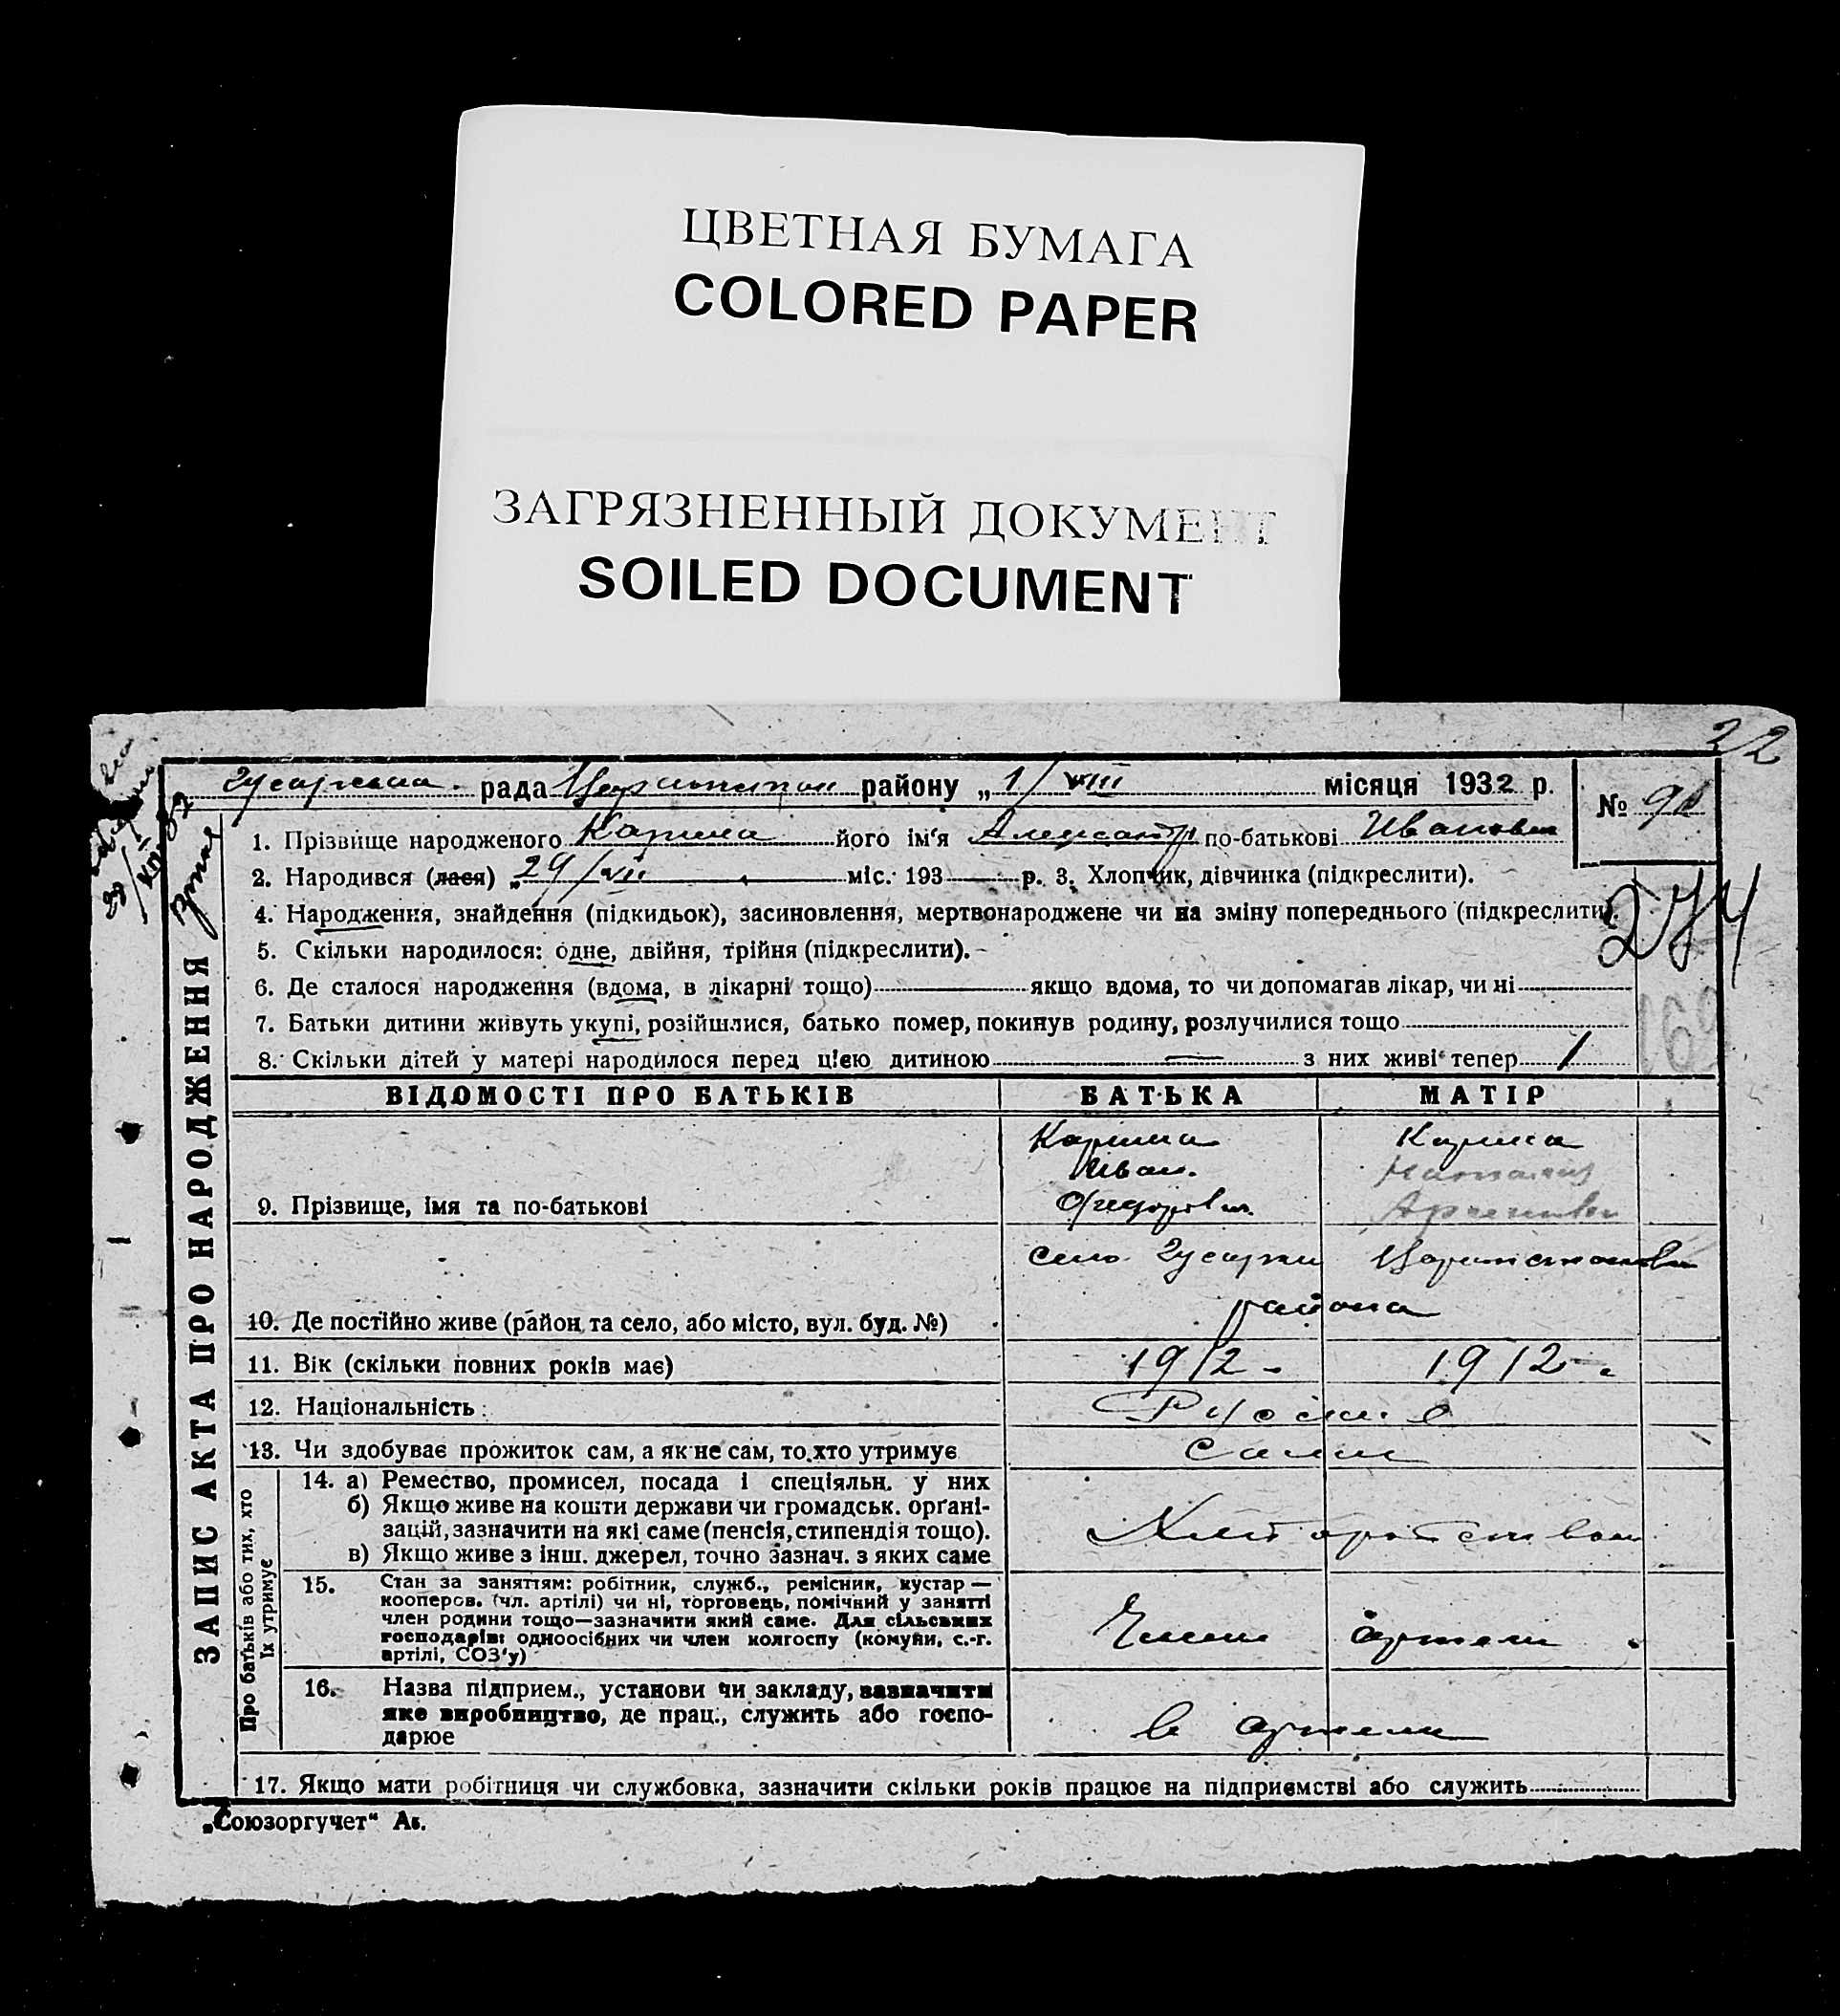 ЦВЕТНАЯ БУМАГА
COLORED PAPER
ЗАГРЯЗНЕННЫЙ ДОКУМЕНТ
SOILED DOCUMENT
22
рада району „1/VIII місяця 1932 р.
№
1. Прізвище народженого його ім'я Александр по-батькові Иванович
2. Народився (лася) „29/VII міс. 193 р. 3. Хлопчик, дівчинка (підкреслити).
4. Народження, знайдення (підкидьок), засиновлення, мертвонароджене чи на зміну попереднього (підкреслити).
274
5. Скільки народилося: одне, двійня, трійня (підкреслити).
6. Де сталося народження (вдома, в лікарні тощо) якщо вдома, то чи допомагав лікар, чи ні
7. Батьки дитини живуть укупі, розійшлися, батько помер, покинув родину, розлучилися тощо
8. Скільки дітей у матері народилося перед цією дитиною — з них живі тепер 1
ЗАПИС АКТА ПРО НАРОДЖЕННЯ
ВІДОМОСТІ ПРО БАТЬКІВ БАТЬКА МАТІР
Иван
9. Прізвище, імя та по-батькові
село
района
10. Де постійно живе (район та село, або місто, вул. буд. №)
11. Вік (скільки повних років має) 1912 1912
12. Національність
13. Чи здобуває прожиток сам, а як не сам, то хто утримує сами
Про батьків або тих, хто їх утримує
14. а) Ремество, промисел, посада і спеціяльн. у них
б) Якщо живе на кошти держави чи громадськ. орґані-
зацій, зазначити на які саме (пенсія, стипендія тощо).
в) Якщо живе з інш. джерел, точно зазнач. з яких саме
15. Стан за заняттям: робітник, служб., ремісник, кустар —
кооперов. (чл. артілі) чи ні, торговець, помічний у занятті
член родини тощо—зазначити який саме. Для сільських
господарів: одноосібних чи член колгоспу (комуни, с.-г.
артілі, СОЗ'у)
Член артели
16. Назва підприєм., установи чи закладу, зазначити
яке виробництво, де прац., служить або госпо-
дарює
в артели
17. Якщо мати робітниця чи службовка, зазначити скільки років працює на підприємстві або служить
„Союзоргучет“